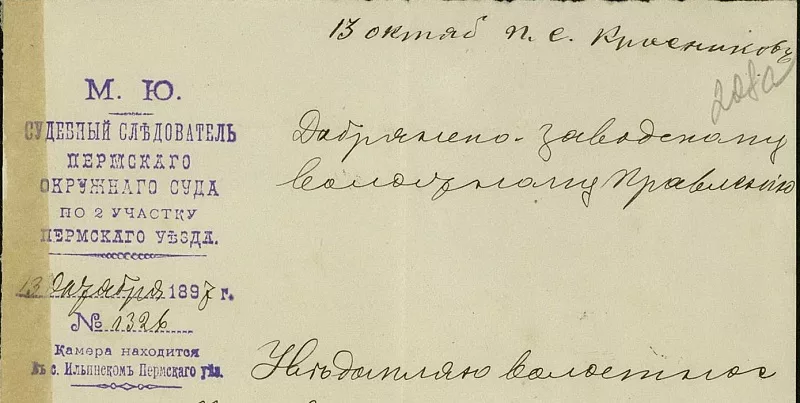 13 октяб П. С. Красникова
208а
М. Ю.
СУДЕБНЫЙ СЛѢДОВАТЕЛЬ
ПЕРМСКАГО
ОКРУЖНАГО СУДА
ПО 2 УЧАСТКУ
ПЕРМСКАГО УѢЗДА.
13 октября 1897 г.
№ 1326
Камера находится
въ с. Ильинскомъ Пермскаго уѣз.
Добрянско-Заводскому
волостному Правленію
Увѣдомляю волостное